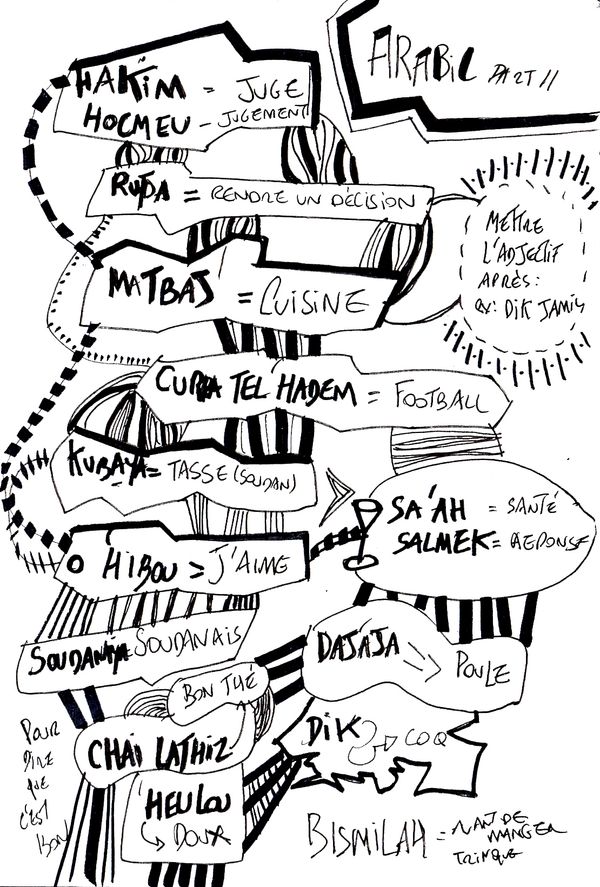 ARABIC PART II
HAKIM = JUGE
HOCMEU - JUGEMENT
RUDA = RENDRE UN DÉCISION
METTRE
L'ADJECTIF
APRÈS:
EX: DIK JAMIS
MATBAJ = CUISINE
CURRA TEL HADEM = FOOTBALL
KUBAYA = TASSE (SOUDAN)
SA'AH = SANTÉ
SALMEK = RÉPONSE
O HIBOU > J'AIME
SOUDANIYA SOUDANAIS
DAJAJA
POULE
BON THÉ
DIK COQ
CHAI LATHIZ
POUR
DIRE
QUE
C'EST
BON
HEULOU
DOUX
BISMILAH =
AVANT DE
MANGER
TRINQUE